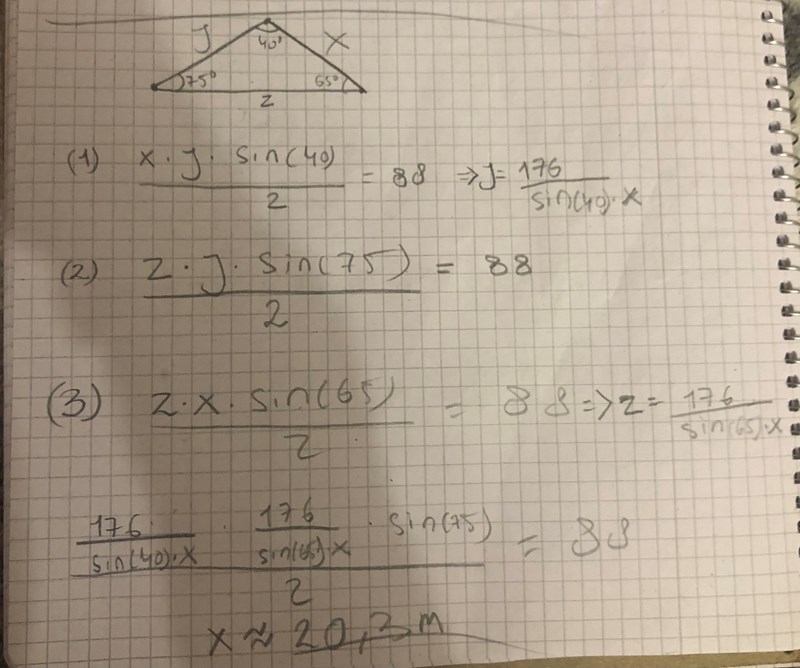 J 40° X
75° 65°
z
(1) x · J · sin(40) / 2 = 88 => J = 176 / sin(40)·x
(2) z · J · sin(75) / 2 = 88
(3) z · x · sin(65) / 2 = 88 => z = 176 / sin(65)·x
176 / sin(40)·x · 176 / sin(65)·x · sin(75) / 2 = 88
x ≈ 20,3 m